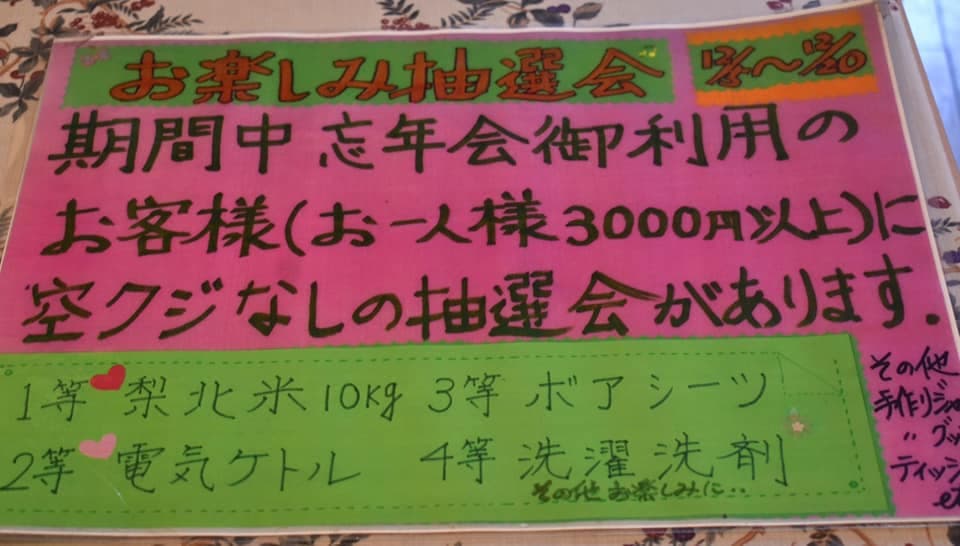 お楽しみ抽選会
期間中 忘年会御利用の
お客様(お一人様3000円以上)に
空クジなしの抽選会があります.
1等 梨北米10kg 3等 ボアシーツ
2等 電気ケトル 4等 洗濯洗剤
その他お楽しみに..
その他
手作り
〃
ティッシ